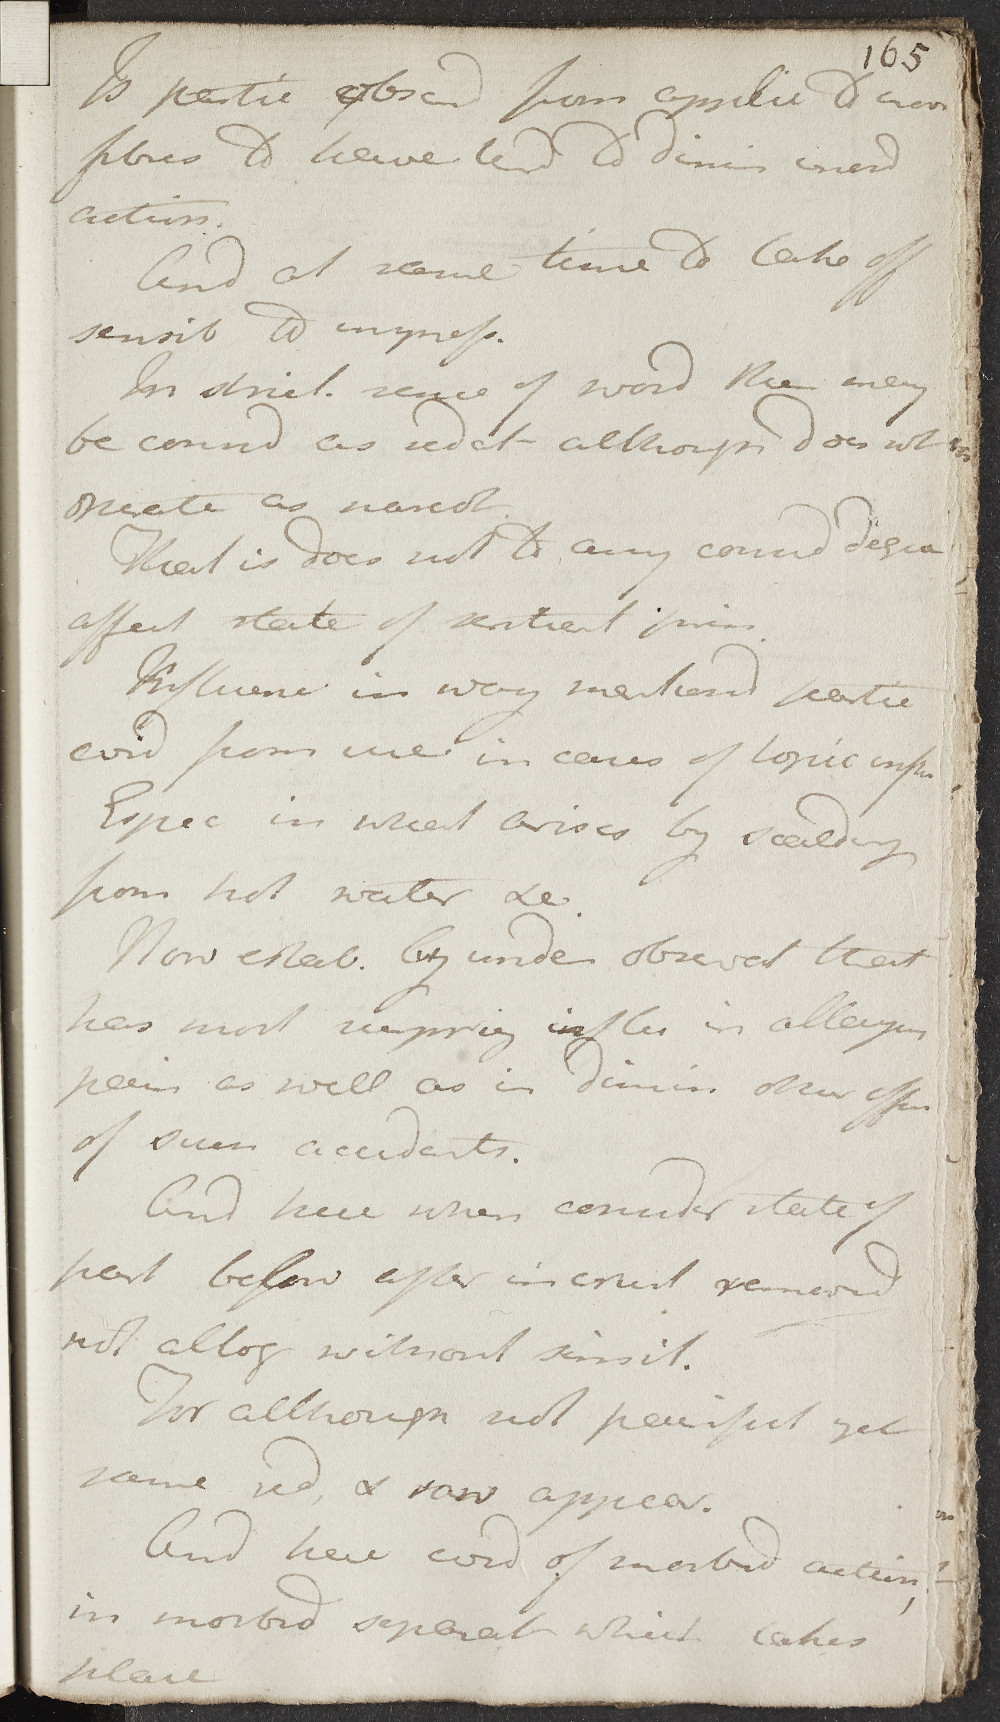 165
Is partic obserd from applic to
fibres to have tend to dimin inerd
action.
And at same time to take off
sensib to impress.
In strict. sense of word then may
be consid as sedat although does not
operate as narcot.
That is does not to any consid degree
affect state of sentient prin.
Influence in way mentiond partic
evid from use in cases of topic infla
Espec in what arises by scalding
from hot water &c.
Now estab. by under observat that
has most surprig influ in allaying
pain as well as in dimin other effec
of such accidents.
And here when consider state of
part before after incrust removed
not altog without sensib.
For although not painful yet
same red, & raw appear.
And here evid of morbid action,
in morbid separat which takes
place